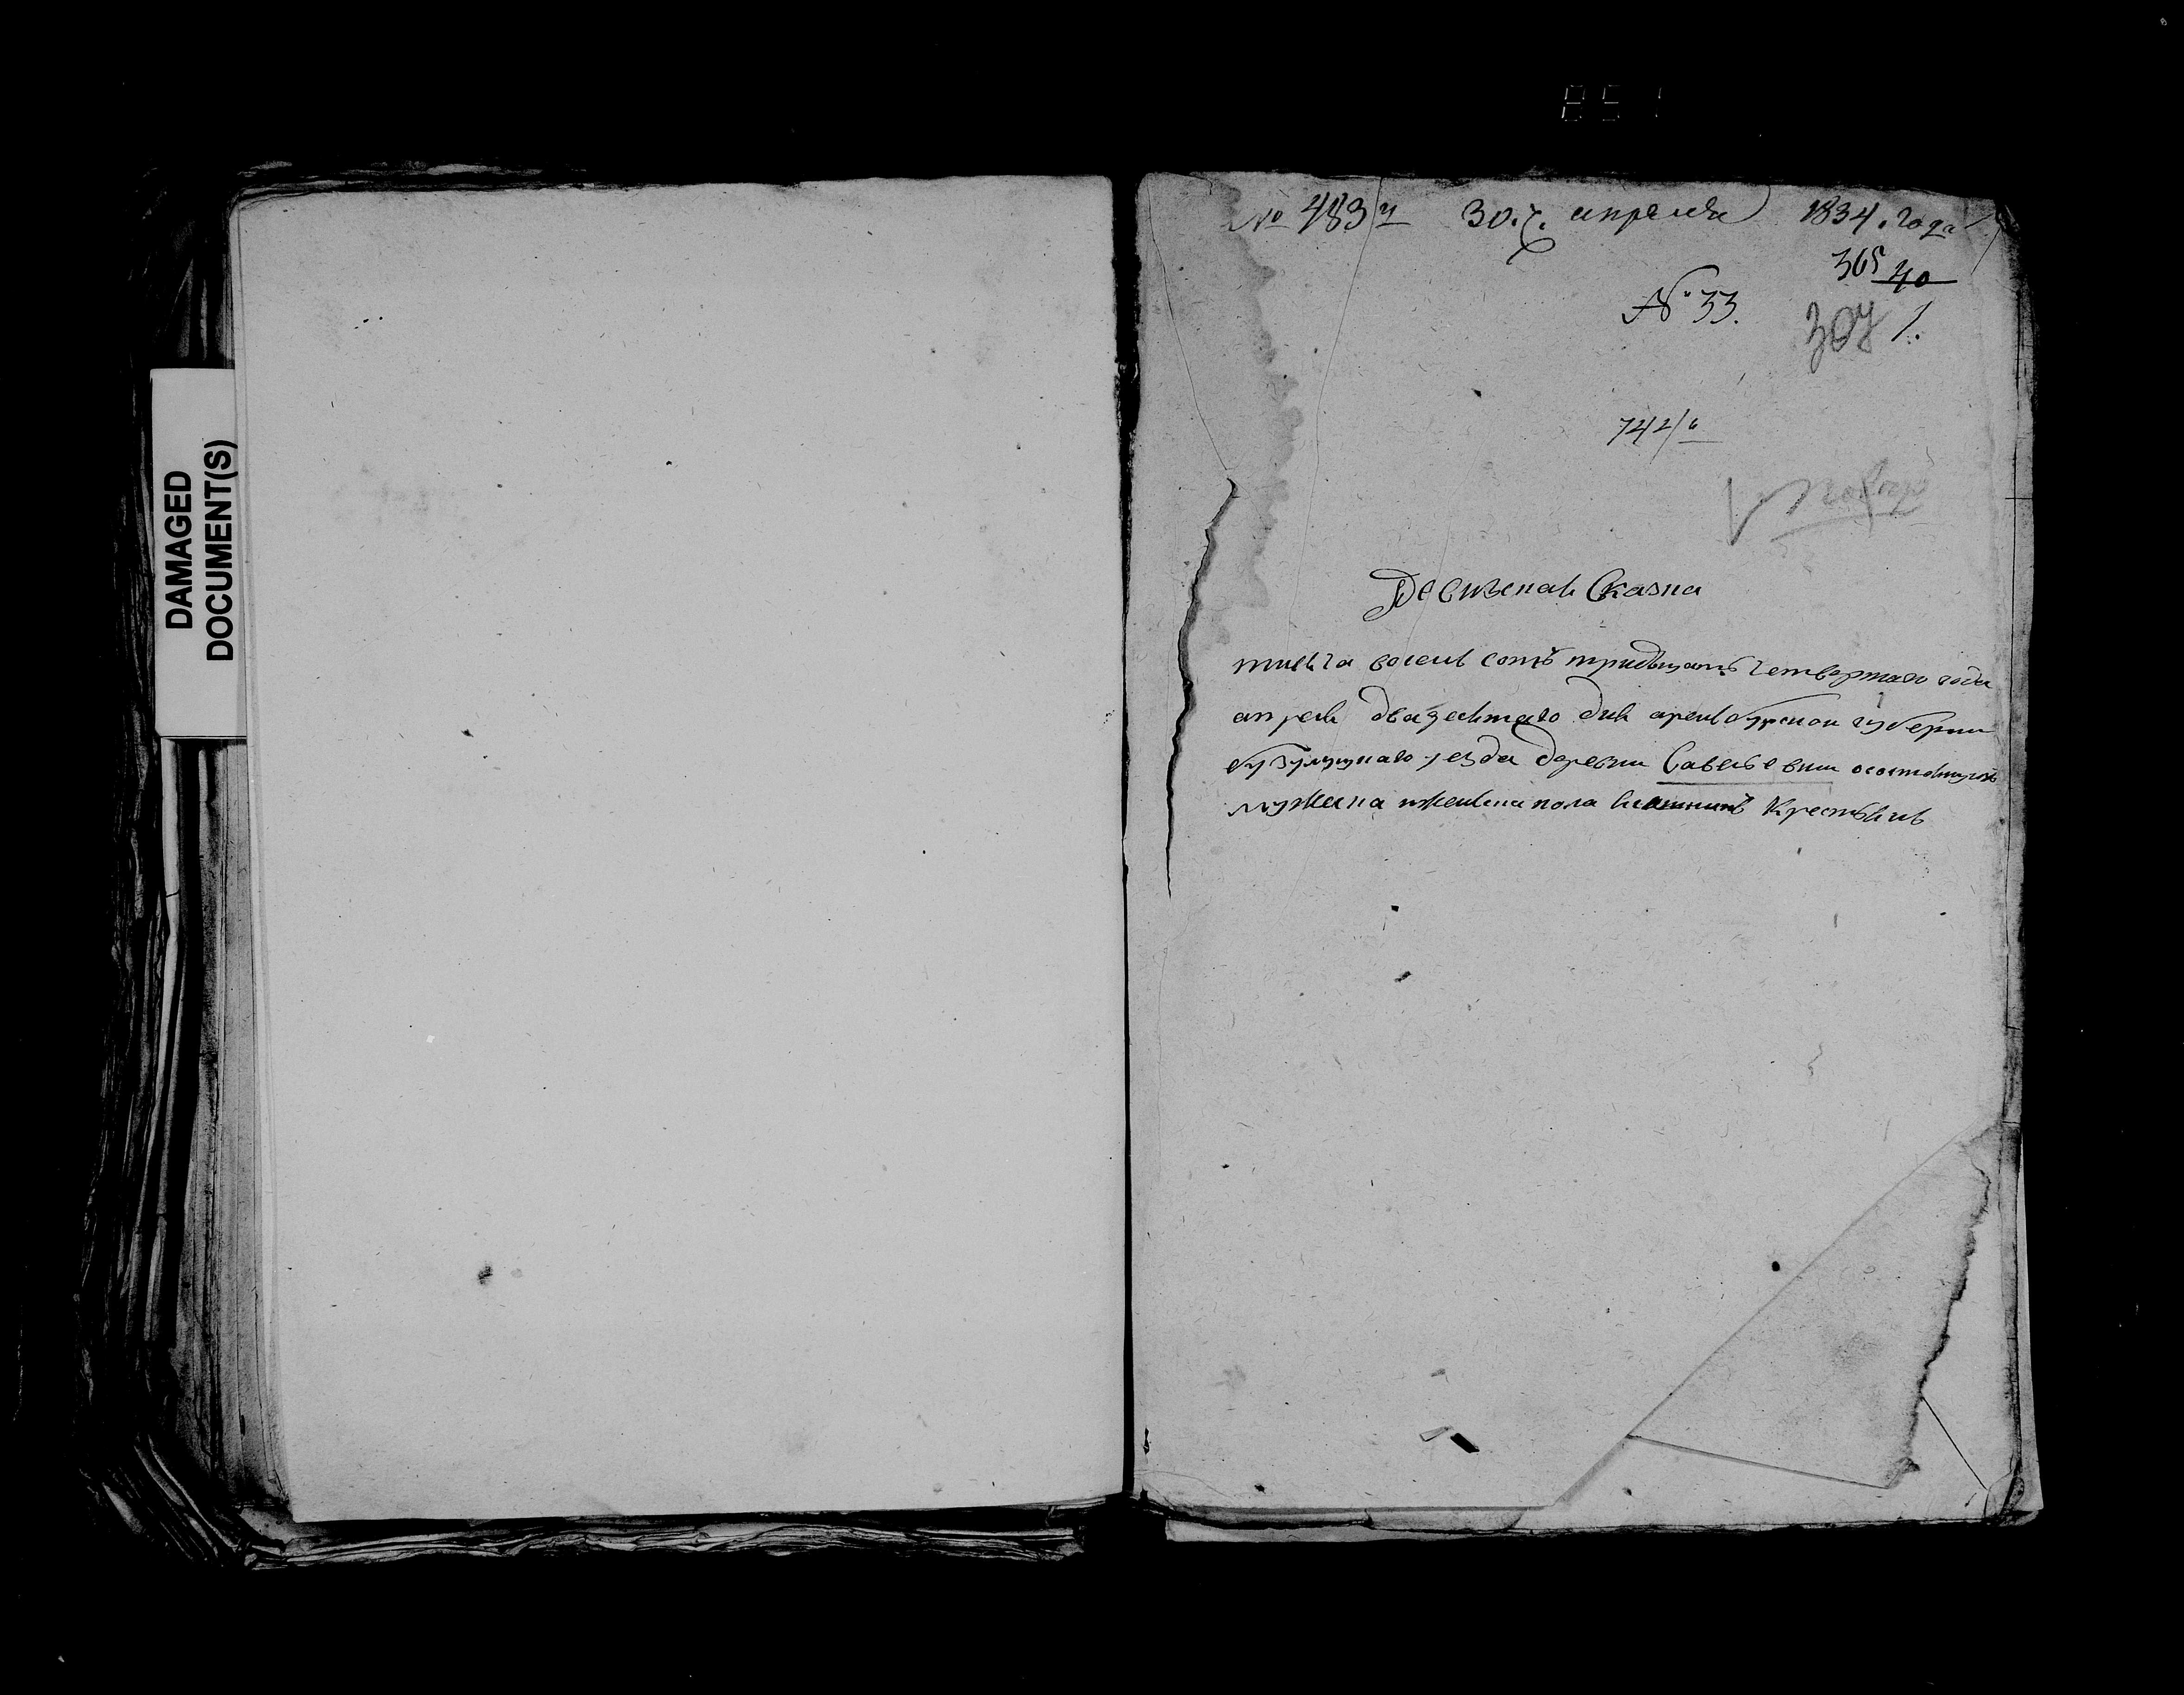 DAMAGED
DOCUMENT(S)
851
№ 483й 30.г. апреля 1834. года
365 40
№ 33. 307 1.
742/6
Ревизская Сказка
тысеча восемь сотъ тридцать четвертаго года
апреля двадесятаго дня оренбургской губерни
бузулуцкаго уезда деревни Савельевки осостоящихъ
мужеска ижениска пола крестьянъ